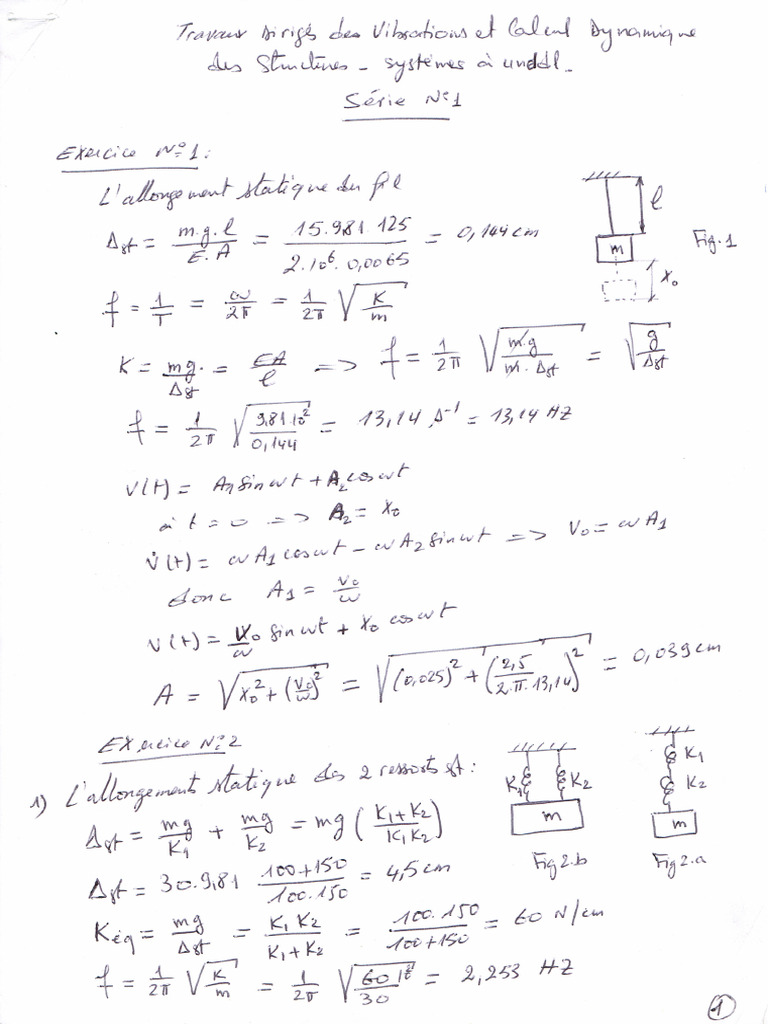 Travaux Dirigés des Vibrations et Calcul Dynamique
des Structures - systèmes à un ddl -
Série N°1
Exercice N°1:
L'allongement statique du fil
Δst = m.g.l / E.A = 15.981.125 / 2.10⁶.0,0065 = 0,144 cm
l
m
x₀
Fig.1
f = 1/T = ω/2π = 1/2π √(K/m)
K = mg/Δst = EA/l => f = 1/2π √(m.g / m.Δst) = √(g/Δst)
f = 1/2π √(9,81.10² / 0,144) = 13,14 s⁻¹ = 13,14 HZ
v(t) = A₁ sin ωt + A₂ cos ωt
à t = 0 => A₂ = x₀
v̇(t) = ωA₁ cos ωt - ωA₂ sin ωt => V₀ = ωA₁
donc A₁ = v₀/ω
v(t) = V₀/ω sin ωt + x₀ cos ωt
A = √(x₀² + (V₀/ω)²) = √((0,025)² + (2,5 / 2.π.13,14)²) = 0,039 cm
Exercice N°2
1) L'allongement statique des 2 ressorts st:
K₁ K₂
m
Fig 2.b
K₁
K₂
m
Fig 2.a
Δst = mg/K₁ + mg/K₂ = mg (K₁+K₂ / K₁K₂)
Δst = 30.9,81 100+150 / 100.150 = 4,5 cm
Kéq = mg/Δst = K₁K₂ / K₁+K₂ = 100.150 / 100+150 = 60 N/cm
f = 1/2π √(K/m) = 1/2π √(60 10² / 30) = 2,253 HZ
1